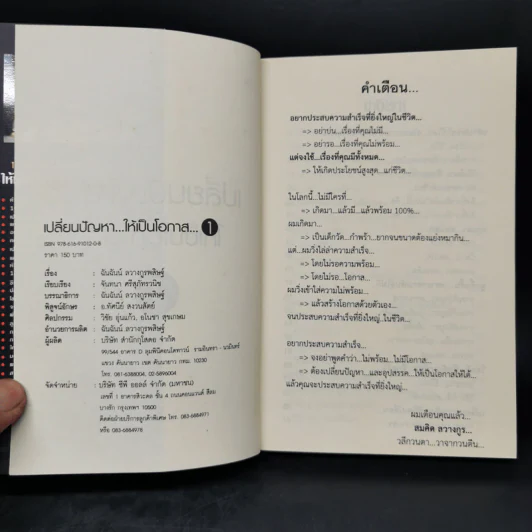 เปลี่ยนปัญหา...ให้เป็นโอกาส... 1
ISBN 978-616-91012-0-8
ราคา 150 บาท
เรื่อง : ฉันฉันน์ ลวางกูรพสิษฐ์
เรียบเรียง : จันทนา ศรีสุภัทรวนิช
บรรณาธิการ : ฉันฉันน์ ลวางกูรพสิษฐ์
พิสูจน์อักษร : อ.ทัศนีย์ สงวนสัตย์
ศิลปกรรม : วิชัย อุ่นแก้ว, อโนชา สุขเกษม
อำนวยการผลิต : ฉันฉันน์ ลวางกูรพสิษฐ์
ผู้ผลิต : บริษัท สำนักกุโสดอ จำกัด
99/544 อาคาร D ลุมพินีคอนโดทาวน์ รามอินทรา - นวมินทร์
แขวง คันนายาว เขต คันนายาว กทม. 10230
โทร. 081-6388004, 02-5896004
จัดจำหน่าย : บริษัท ซีพี ออลล์ จำกัด (มหาชน)
เลขที่ 1 อาคารสีวะดล ชั้น 4 ถนนคอนแวนต์ สีลม
บางรัก กรุงเทพฯ 10500
ติดต่อฝ่ายบริการลูกค้าพิเศษ โทร. 083-6884977
หรือ 083-6884978
คำเตือน...
อยากประสบความสำเร็จที่ยิ่งใหญ่ในชีวิต...
=> อย่าบ่น...เรื่องที่คุณไม่มี...
=> อย่ารอ...เรื่องที่คุณไม่พร้อม...
แต่จงใช้...เรื่องที่คุณมีทั้งหมด...
=> ให้เกิดประโยชน์สูงสุด...แก่ชีวิต...
ในโลกนี้...ไม่มีใครที่...
=> เกิดมา...แล้วมี...แล้วพร้อม 100%...
ผมเกิดมา...
=> เป็นเด็กวัด...กำพร้า...ยากจนขนาดต้องแย่งหมากิน...
แต่...ผมวิ่งไล่ล่าความสำเร็จ...
=> โดยไม่รอความพร้อม...
=> โดยไม่รอ...โอกาส...
ผมวิ่งเข้าใส่ความไม่พร้อม...
=> แล้วสร้างโอกาสด้วยตัวเอง...
จนประสบความสำเร็จที่ยิ่งใหญ่...ในชีวิต...
อยากประสบความสำเร็จ...
=> จงอย่าพูดคำว่า...ไม่พร้อม...ไม่มีโอกาส...
=> ต้องเปลี่ยนปัญหา...และอุปสรรค...ให้เป็นโอกาสให้ได้...
แล้วคุณจะประสบความสำเร็จที่ยิ่งใหญ่...
ผมเตือนคุณแล้ว...
สมคิด ลวางกูร...
วลีกวนตา...วาจากวนตีน...